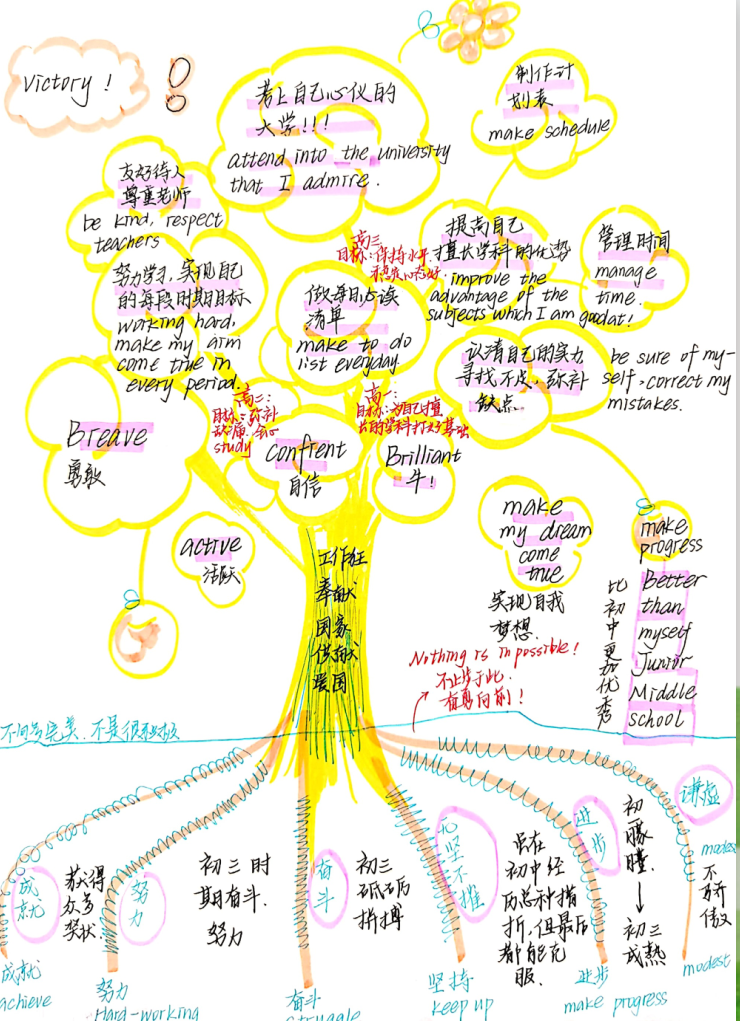 victory !
考上自己心仪的
大学!!!
attend into the university
that I admire.
制作计
划表
make schedule
友好待人
尊重老师
be kind, respect
teachers
努力学习,实现自己
的每段时期目标
working hard,
make my arm
come true in
every period.
高三
目标:保持水平,
提高自己
擅长学科的优势
improve the
advantage of the
subjects which I am goodat!
管理时间
manage
time.
做每日必读
清单
make to do
list everyday.
认清自己的实力
寻找不足,弥补
缺点
be sure of my-
self, correct my
mistakes.
高二:
目标:弥补
study
高一:
目标:为自己擅
长的学科打好基础
Breave
勇敢
confrent
自信
Brilliant
牛!
active
活跃
make
my dream
come
true
实现自我
梦想.
make
progress
比初中更加优秀
Better
than
myself
Junior
Middle
school
工作狂
奉献
国家
贡献
爱国
Nothing is impossible!
不止步于此.
奋勇向前!
成就
获得
众多
奖状.
努力
初三时
期奋斗.
努力
奋斗
初三
砥砺
拼搏
无坚不摧
虽在
初中经
历各种挫
折,但最后
都能克
服.
进步
初一
朦朦
初三
成熟
谦虚
modes
不骄傲
成就
achieve
努力
Hard-working
奋斗
struggle
坚持
keep up
进步
make progress
modest